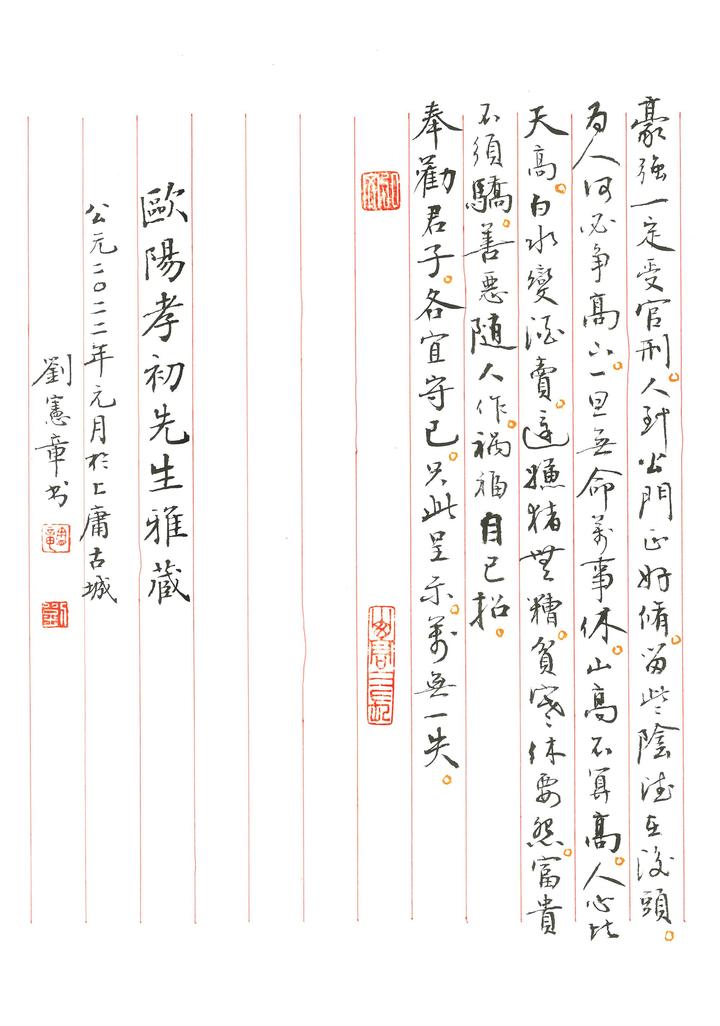 豪強一定受官刑。人到公門正好修。留些陰德在後頭。
為人何必争高山。一旦無命萬事休。山高不算高。人心比
天高。白水變酒賣。還嫌猪無糟。貧寒休要怨。富貴
不須驕。善惡随人作。禍福自己招。
奉勸君子。各宜守己。只此呈示。萬無一失。
歐陽孝初先生雅藏
公元二〇二二年元月於上庸古城
劉憲章书